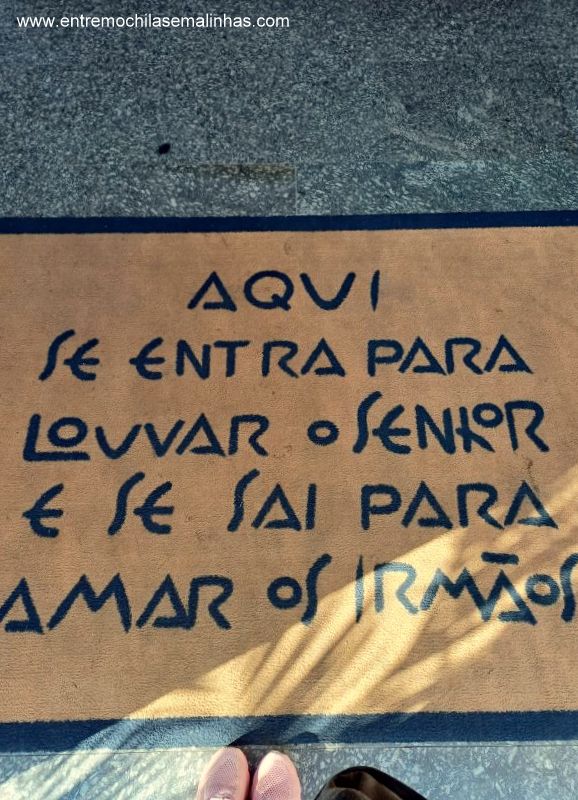 www.entremochilasemalinhas.com
AQUI
SE ENTRA PARA
LOUVAR O SENHOR
E SE SAI PARA
AMAR OS IRMÃOS